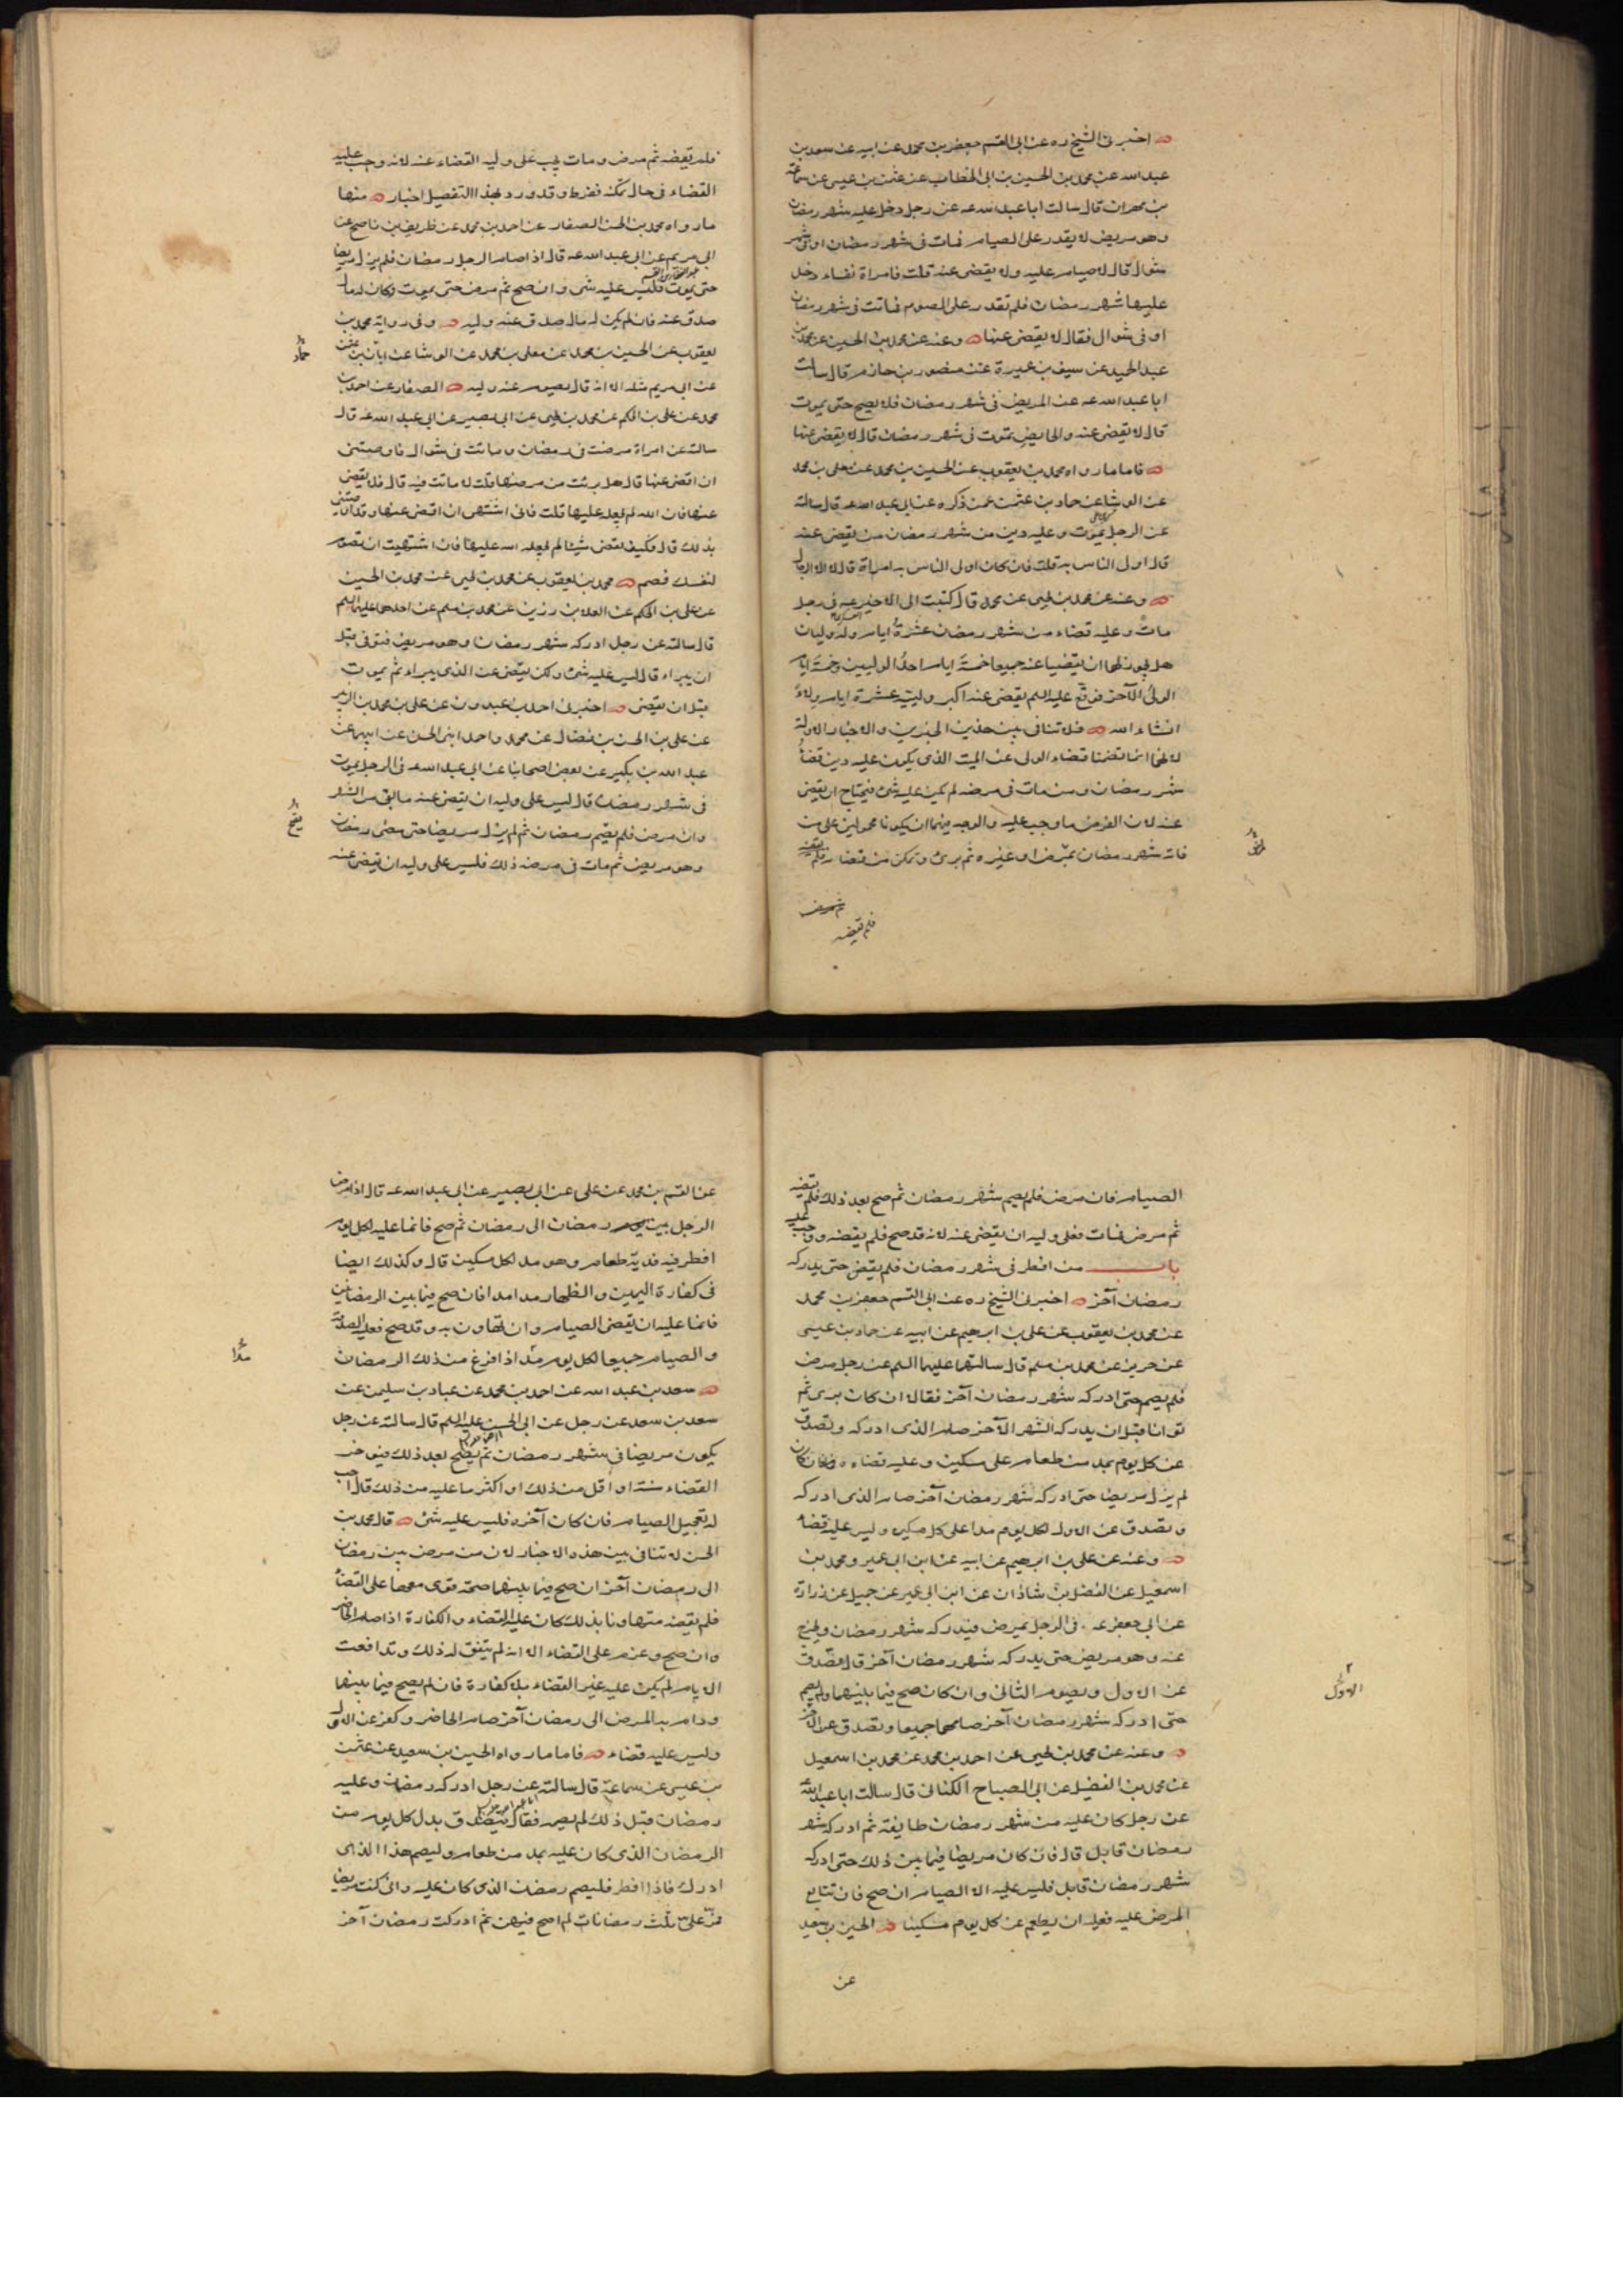 اخبرنى الشيخ ره عن ابى القسم جعفر بن محمد عن ابيه عن سعد بن
عبد الله عن محمد بن الحسين بن ابى الخطاب عن عثمن بن عيسى عن سماعة
بن مهران قال سالت ابا عبد الله عه عن رجل دخل عليه شهر رمضان
وهو مريض لا يقدر على الصيام فمات فى شهر رمضان او فى شهر
شوال قال لا صيام عليه ولا يقضى عنه قلت فامراة نفساء دخل
عليها شهر رمضان فلم تقدر على الصوم فماتت فى شهر رمضان
او فى شوال فقال لا يقضى عنها وعنه عن محمد بن الحسين عن محمد بن
عبد الحميد عن سيف بن عميرة عن منصور بن حازم قال سالت
ابا عبد الله عه عن المريض فى شهر رمضان فلا يصح حتى يموت
قال لا يقضى عنه والحايض تموت فى شهر رمضان قال لا يقضى عنها
فاما ما رواه محمد بن يعقوب عن الحسين بن محمد عن معلى بن محمد
عن الوشا عن حماد بن عثمن عمن ذكره عن ابى عبد الله عه قال سالته
عن الرجل يموت وعليه دين من شهر رمضان من يقضى عنه
قال اولى الناس به قلت فان كان اولى الناس به امراة قال لا الا الرجال
وعنه عن محمد بن يحيى عن محمد قال كتبت الى الاخير عه فى رجل
مات وعليه قضاء من شهر رمضان عشرة ايام وله وليان
هل يجوز لهما ان يقضيا عنه جميعا خمسة ايام احد الوليين وخمسة ايام
الولى الآخر فوقع عليه السلم يقضى عنه اكبر ولييه عشرة ايام ولاء
انشاء الله فلا تنافى بين هذين الخبرين والاخبار الاولة
لانهما انما تضمنا قضاء الولى عن الميت الذى يكون عليه دين قضاء
شهر رمضان ومن مات فى مرضه لم يكن عليه شئ فيحتاج ان يقضى
عنه لان الفرض ما وجب عليه والوجه فيهما ان يكونا محمولين على من
فاته شهر رمضان بمرض او غيره ثم برئ وتمكن من قضائه فلم يقضه
فلم يقضه
فلم يقضه ثم مرض ومات يجب على وليه القضاء عنه لانه وجب عليه
القضاء فى حال تمكنه ففرط وقد ورد بهذا التفصيل اخبار منها
ما رواه محمد بن الحسن الصفار عن احمد بن محمد عن ظريف بن ناصح عن
ابى مريم عن ابى عبد الله عه قال اذا صام الرجل رمضان فلم يزل مريضا
حتى يموت فليس عليه شى وان صح ثم مرض حتى يموت وكان له مال
صدق عنه فان لم يكن له مال صدق عنه وليه وفى رواية محمد بن
يعقوب عن الحسين بن محمد عن معلى بن محمد عن الوشا عن ابان بن عثمن
حماد
عن ابى مريم مثله الا انه قال يصوم عنه وليه الصفار عن احمد بن
محمد عن على بن الحكم عن محمد بن يحيى عن ابى بصير عن ابى عبد الله عه قال
سالته عن امراة مرضت فى رمضان وماتت فى شوال فاوصتنى
ان اقضى عنها قال هل برئت من مرضها قلت لا ماتت فيه قال فلا يقضى
عنها فان الله لم يجعله عليها قلت فانى اشتهى ان اقضى عنها وقد اوصتنى
بذلك قال فكيف تقضى شيئا لم يجعله الله عليها فان اشتهيت ان تصوم
لنفسك فصم محمد بن يعقوب عن محمد بن يحيى عن محمد بن الحسين
عن على بن الحكم عن العلا بن رزين عن محمد بن مسلم عن احدهما عليهما السلم
قال سالته عن رجل ادركه شهر رمضان وهو مريض فتوفى قبل
ان يبراء قال ليس عليه شئ ولكن يقضى عن الذى يبراء ثم يموت
قبل ان يقضى اخبرنى احمد بن عبدون عن على بن محمد بن الزبير
عن على بن الحسن بن فضال عن محمد واحمد ابنى الحسن عن ابيهما عن
عبد الله بن بكير عن بعض اصحابنا عن ابى عبد الله عه فى الرجل يموت
فى شهر رمضان قال ليس على وليه ان يقضى عنه ما بقى من الشهر
وان مرض فلم يصم رمضان ثم لم يزل مريضا حتى مضى رمضان
وهو مريض ثم مات فى مرضه ذلك فليس على وليه ان يقضى عنه
الصيام فان مرض فلم يصم شهر رمضان ثم صح بعد ذلك فلم يقضه
ثم مرض فمات فعلى وليه ان يقضى عنه لانه قد صح فلم يقضه ووجب عليه
باب من افطر فى شهر رمضان فلم يقض حتى يدركه
رمضان آخر اخبرنى الشيخ ره عن ابى القسم جعفر بن محمد
عن محمد بن يعقوب عن على بن ابرهيم عن ابيه عن حماد بن عيسى
عن حريز عن محمد بن مسلم قال سالتهما عليهما السلم عن رجل مرض
فلم يصم حتى ادركه شهر رمضان آخر فقالا ان كان برى ثم
توانا قبل ان يدركه الشهر الآخر صام الذى ادركه وتصدق
عن كل يوم بمد من طعام على مسكين وعليه قضاءه وان كان
لم يزل مريضا حتى ادركه شهر رمضان آخر صام الذى ادركه
وتصدق عن الاول لكل يوم مدا على كل مسكين وليس عليه قضاء
وعنه عن على بن ابرهيم عن ابيه عن ابن ابى عمير ومحمد بن
اسمعيل عن الفضل بن شاذان عن ابن ابى عمير عن جميل عن زرارة
عن ابى جعفر عه فى الرجل يمرض فيدركه شهر رمضان ويخرج
عنه وهو مريض حتى يدركه شهر رمضان آخر قال يتصدق
عن الاول ويصوم الثانى وان كان صح فيما بينهما ولم يصم
الاول
حتى ادركه شهر رمضان آخر صامهما جميعا وتصدق عن الآخر
وعنه عن محمد بن يحيى عن احمد بن محمد عن محمد بن اسمعيل
عن محمد بن الفضيل عن ابى الصباح الكنانى قال سالت ابا عبد الله
عن رجل كان عليه من شهر رمضان طايفة ثم ادركه شهر
رمضان قابل قال فان كان مريضا فيما بين ذلك حتى ادركه
شهر رمضان قابل فليس عليه الا الصيام ان صح فان تتابع
المرض عليه فعليه ان يطعم عن كل يوم مسكينا الحسين بن سعيد
عن
عن القسم بن محمد عن على عن ابى بصير عن ابى عبد الله عه قال اذا مرض
الرجل بين رمضان الى رمضان ثم صح فانما عليه لكل يوم
افطر فيه فدية طعام وهو مد لكل مسكين قال وكذلك ايضا
فى كفارة اليمين والظهار مدا مدا فان صح فيما بين الرمضانين
فانما عليه ان يقضى الصيام وان تهاون به وقد صح فعليه الصدقة
والصيام جميعا لكل يوم مد اذا فرغ من ذلك الرمضان
مدا
سعد بن عبد الله عن احمد بن محمد عن عباد بن سليمن عن
سعد بن سعد عن رجل عن ابى الحسن عليه السلم قال سالته عن رجل
يكون مريضا فى شهر رمضان ثم يصح بعد ذلك فيوخر
القضاء سنة او اقل من ذلك او اكثر ما عليه من ذلك قال احب
له تعجيل الصيام فان كان آخره فليس عليه شئ قال محمد بن
الحسن لا تنافى بين هذه الاخبار لان من مرض بين رمضان
الى رمضان آخر ان صح فيما بينهما صحة قوى معها على القضاء
فلم يقضه متهاونا بذلك كان عليه القضاء والكفارة اذا صام الحاضر
وان صح وعزم على القضاء الا انه لم يتفق له ذلك وتدافعت
الايام لم يكن عليه غير القضاء بلا كفارة فان لم يصح فيما بينهما
ودام به المرض الى رمضان آخر صام الحاضر وكفر عن الاول
وليس عليه قضاء فاما ما رواه الحسين بن سعيد عن عثمن
بن عيسى عن سماعة قال سالته عن رجل ادركه رمضان وعليه
رمضان قبل ذلك لم يصمه فقال يتصدق بدل كل يوم من
الرمضان الذى كان عليه بمد من طعام وليصم هذا الذى
ادرك فاذا افطر فليصم رمضان الذى كان عليه وانى كنت مريضا
فمر على ثلث رمضانات لم اصح فيهن ثم ادركت رمضان آخر